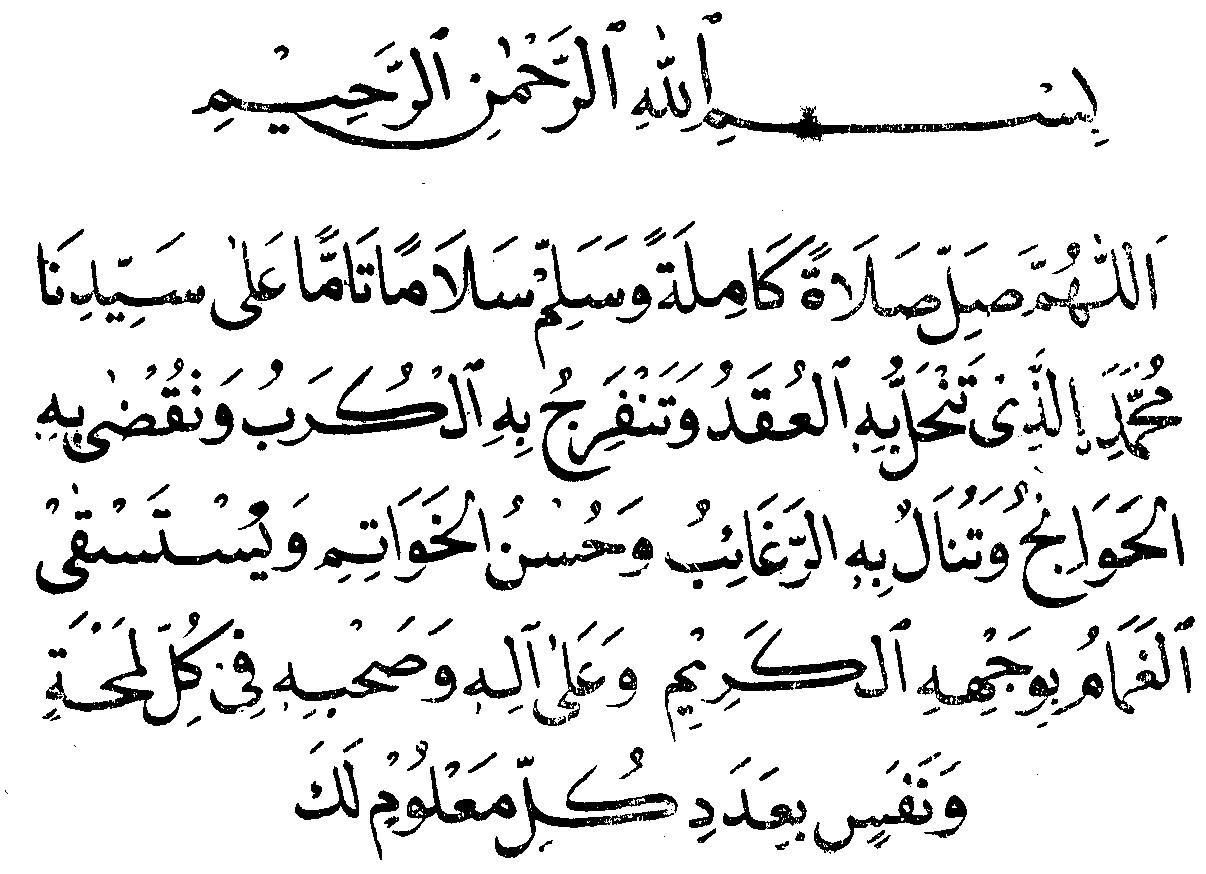 بِسْمِ اللهِ الرَّحْمٰنِ الرَّحِيْمِ
اَللّٰهُمَّ صَلِّ صَلَاةً كَامِلَةً وَسَلِّمْ سَلَامًا تَامًّا عَلٰى سَيِّدِنَا
مُحَمَّدِ ِالَّذِى تَنْحَلُّ بِهِ الْعُقَدُ وَتَنْفَرِجُ بِهِ الْكُرَبُ وَتُقْضٰى بِهِ
الْحَوَائِجُ وَتُنَالُ بِهِ الرَّغَائِبُ وَحُسْنُ الْخَوَاتِمِ وَيُسْتَسْقٰى
الْغَمَامُ بِوَجْهِهِ الْكَرِيْمِ وَعَلٰى آلِهِ وَصَحْبِهِ فِى كُلِّ لَمْحَةٍ
وَنَفَسٍ بِعَدَدِ كُلِّ مَعْلُوْمٍ لَكَ